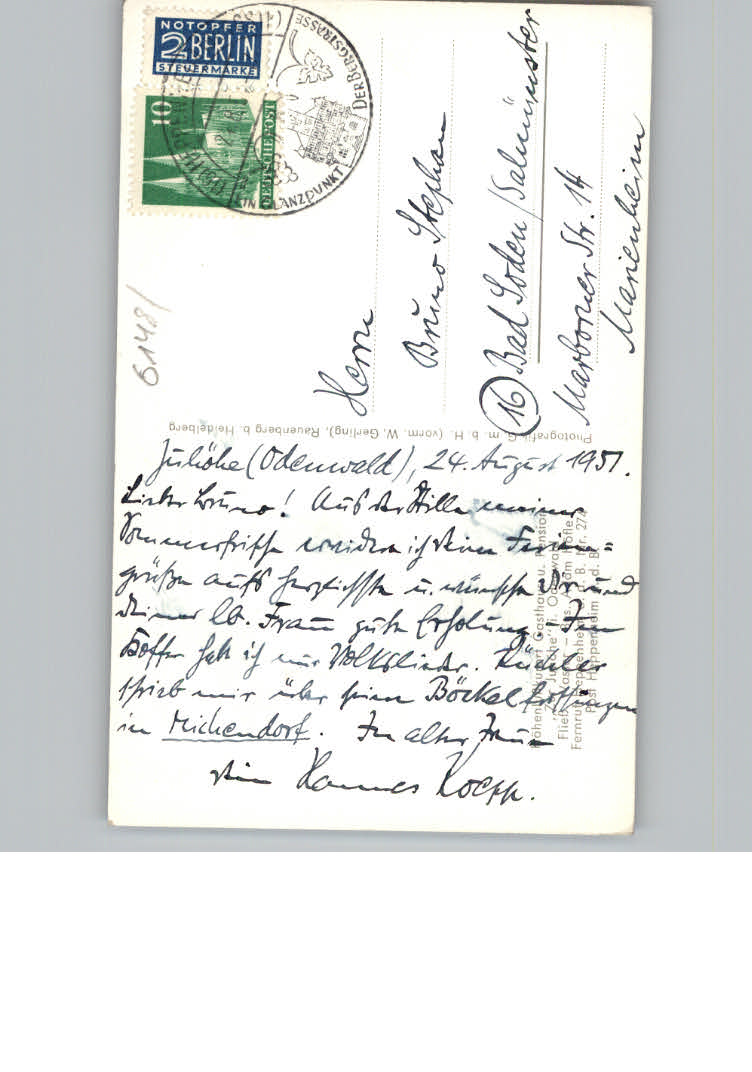 NOTOPFER
2 BERLIN
STEUERMARKE
10
DEUTSCHE POST
EIN GLANZPUNKT DER BERGSTRASSE
6148/
Herrn
Bruno Stephan
(16) Bad Soden/Salmünster
Marborner Str. 14
Marienheim
Photografik G. m. b. H. (vorm. W. Gerling), Rauenberg b. Heidelberg
Juhöhe (Odenwald), 24. August 1951.
Lieber Bruno! Aus der Stille meiner
Sommerfrische erwidere ich Deine Ferien=
grüße aufs herzlichste u. wünsche Dir und
Deiner lb. Frau gute Erholung. – Im
Koffer hab ich nur Volkslieder.
schrieb mir über seine Böckel
in Michendorf. In alter Treue
Dein Hannes Koepp.
Höhenluftkurort Gasthaus u. Pension
"Juhöhe" i. Odenwald
Bes. Adam Höfle
Fernruf Heppenheim a. d. B. Nr. 27
Post Heppenheim a. d. B.